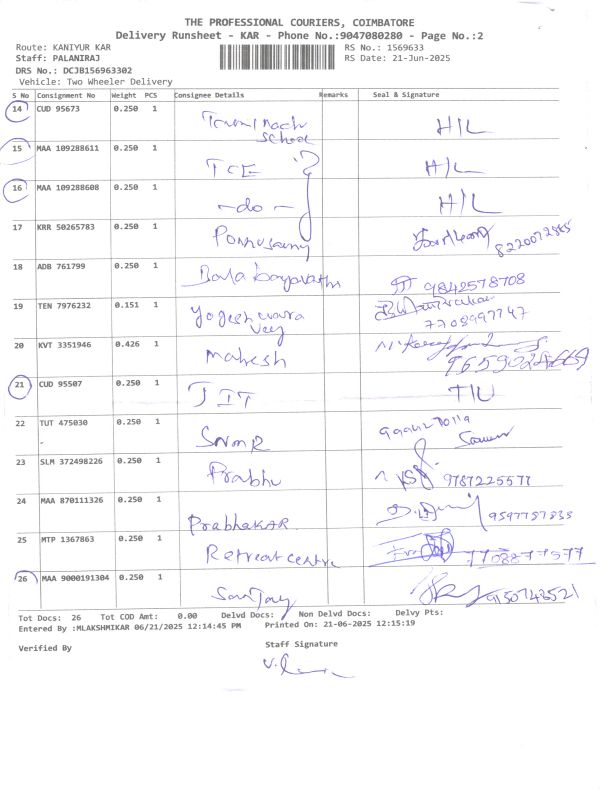 THE PROFESSIONAL COURIERS, COIMBATORE
Delivery Runsheet - KAR - Phone No.:9047080280 - Page No.:2
Route: KANIYUR KAR RS No.: 1569633
Staff: PALANIRAJ RS Date: 21-Jun-2025
DRS No.: DCJB156963302
Vehicle: Two Wheeler Delivery
S No Consignment No Weight PCS Consignee Details Remarks Seal & Signature
14 CUD 95673 0.250 1 School H/L
15 MAA 109288611 0.250 1 TCE H/L
16 MAA 109288608 0.250 1 -do- H/L
17 KRR 50265783 0.250 1 Ponnusamy
18 ADB 761799 0.250 1 9842578708
19 TEN 7976232 0.151 1 7708997747
20 KVT 3351946 0.426 1 Mahesh
21 CUD 95507 0.250 1 JIT
22 TUT 475030 0.250 1 SNMR
-
23 SLM 372498226 0.250 1 Prabhu 9787225577
24 MAA 870111326 0.250 1 PrabhaKAR
25 MTP 1367863 0.250 1 Retreat centre
26 MAA 9000191304 0.250 1 Sanjay 9150743521
Tot Docs: 26 Tot COD Amt: 0.00 Delvd Docs: Non Delvd Docs: Delvy Pts:
Entered By :MLAKSHMIKAR 06/21/2025 12:14:45 PM Printed On: 21-06-2025 12:15:19
Verified By Staff Signature